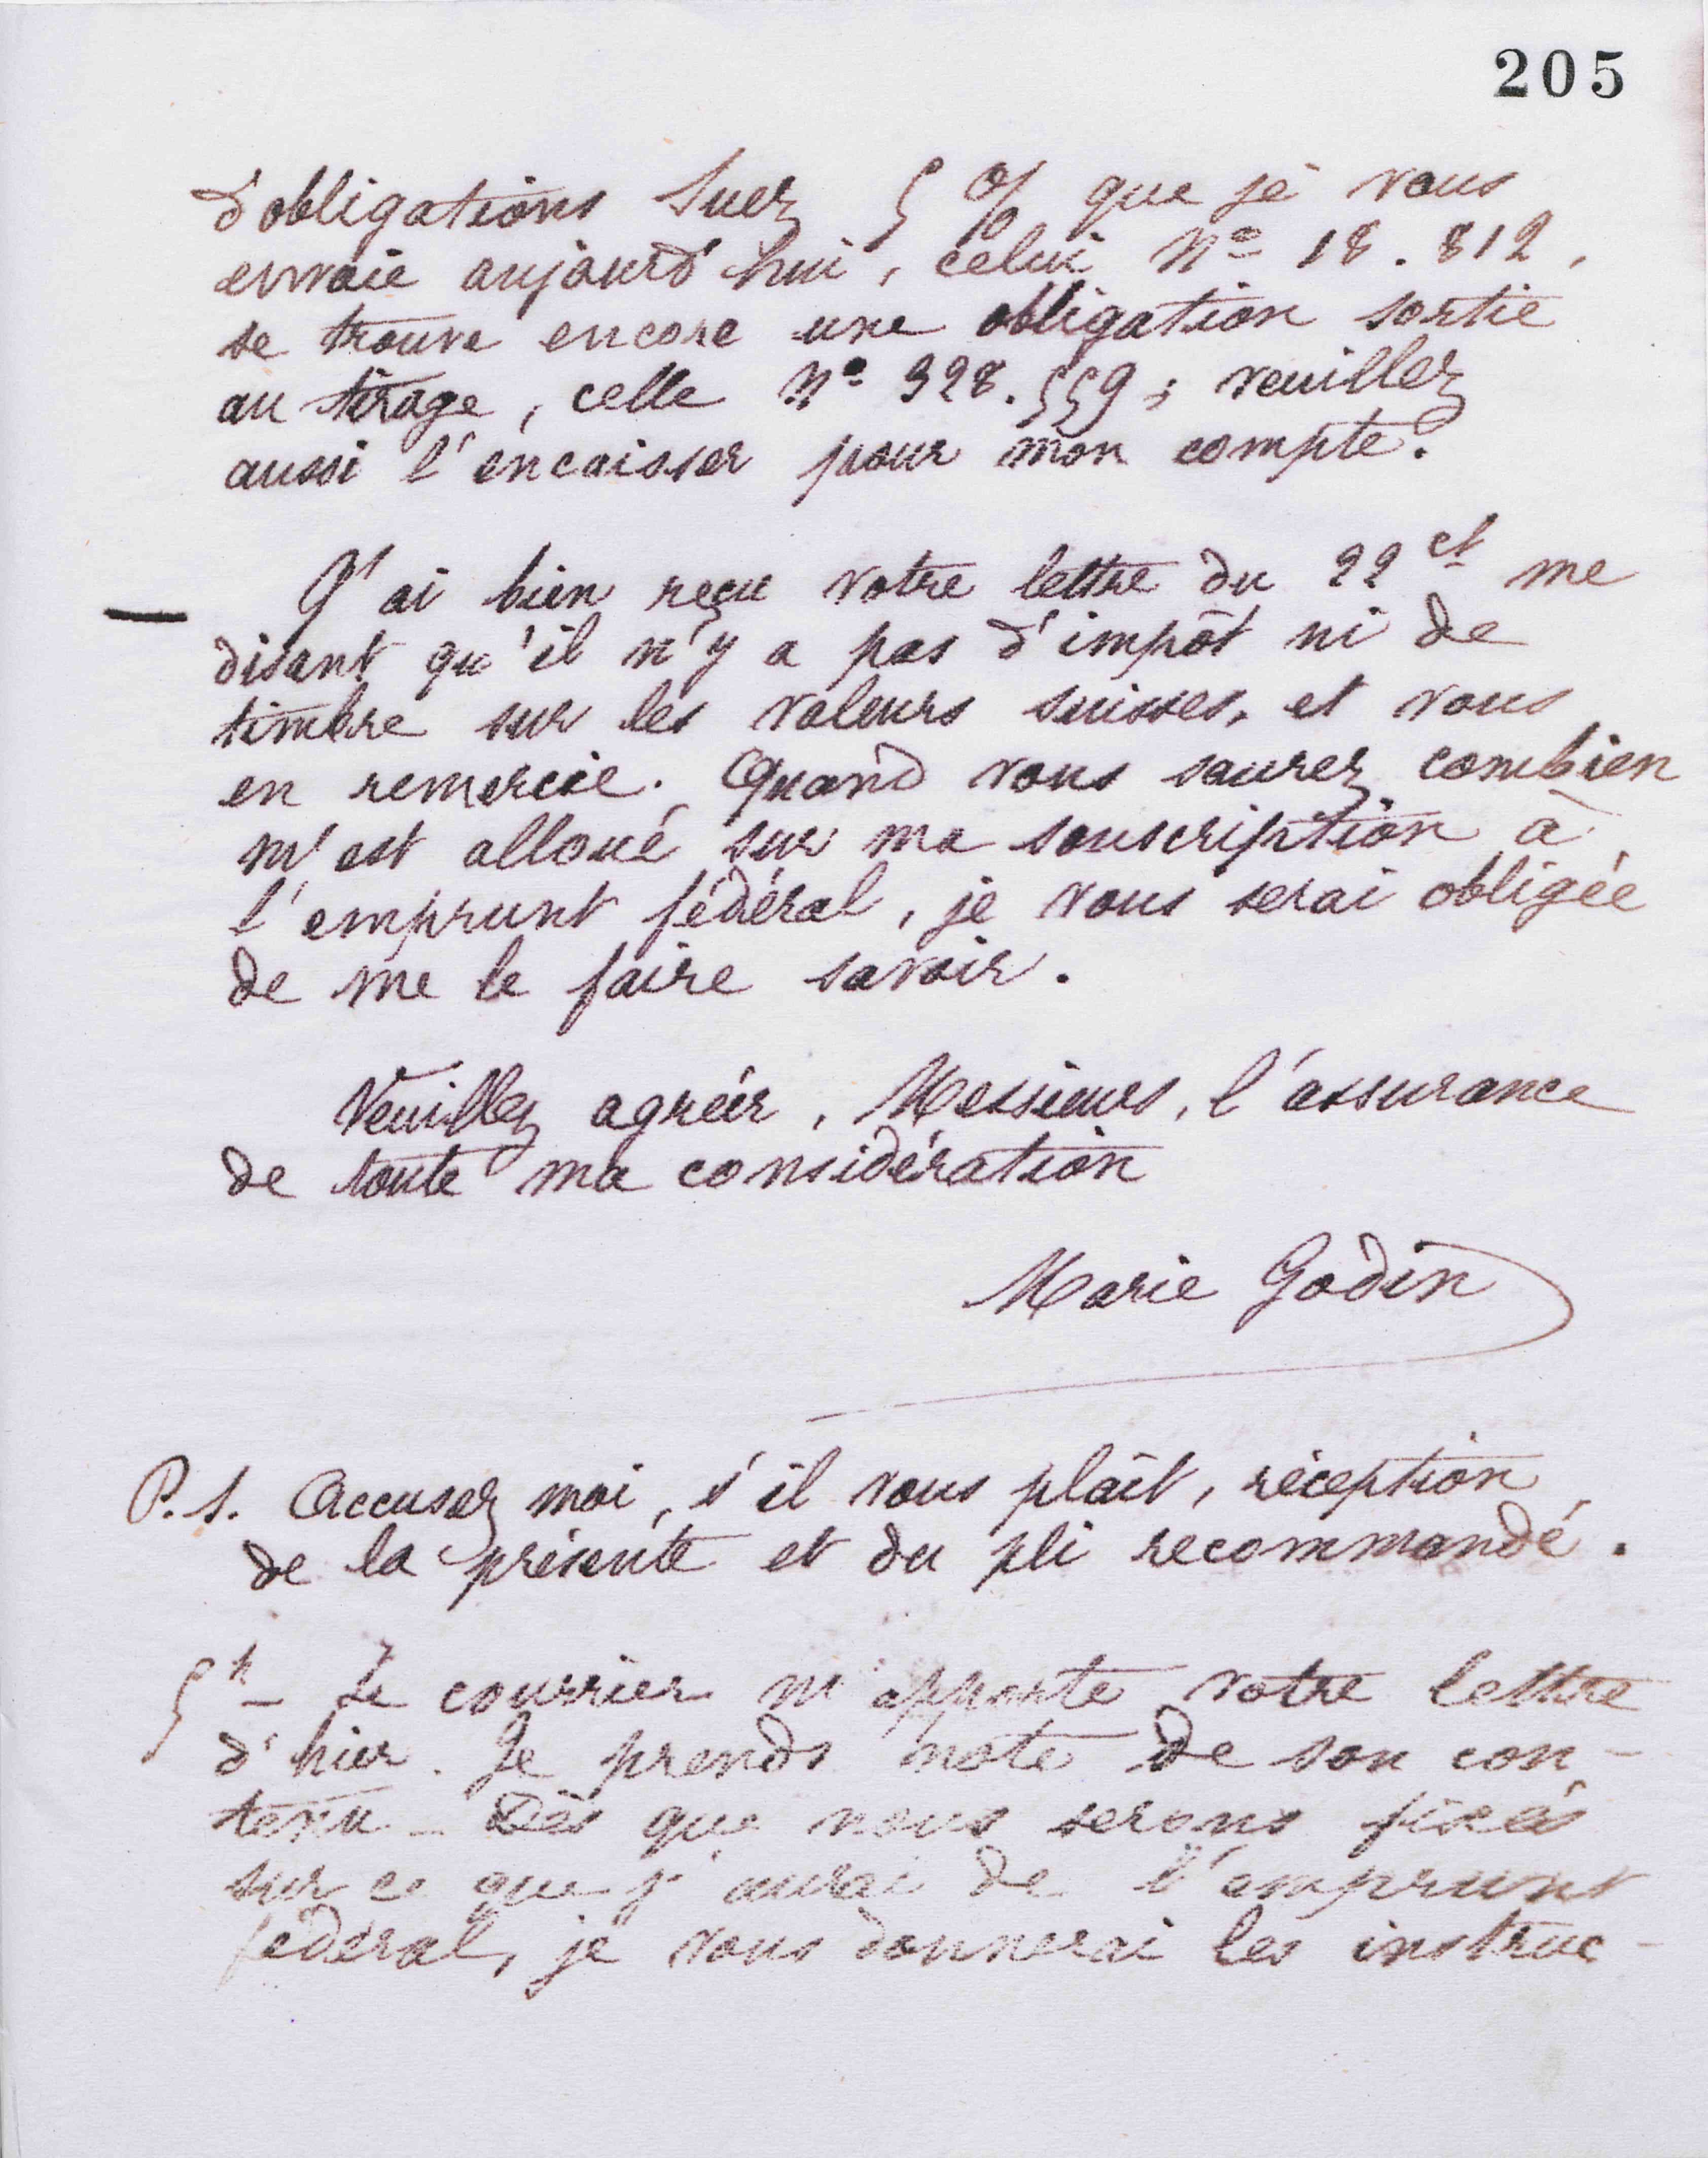 205
d'obligations Suez 5 % que je vous
envoie aujourd'hui, celui Nº 18.812,
se trouve encore une obligation sortie
au tirage, celle Nº 328.559 ; veuillez
aussi l'encaisser pour mon compte.
— J'ai bien reçu votre lettre du 22 ct me
disant qu'il n'y a pas d'impôt ni de
timbre sur les valeurs suisses, et vous
en remercie. Quand vous saurez combien
m'est alloué sur ma souscription à
l'emprunt fédéral, je vous serai obligée
de me le faire savoir.
Veuillez agréer, Messieurs, l'assurance
de toute ma considération
Marie Godin
P.S. Accusez moi, s'il vous plaît, réception
de la présente et du pli recommandé.
5h – Le courrier m'apporte votre lettre
d'hier. Je prends note de son con-
tenu – Dès que nous serons fixés
sur ce que j'aurai de l'emprunt
fédéral, je vous donnerai les instruc-